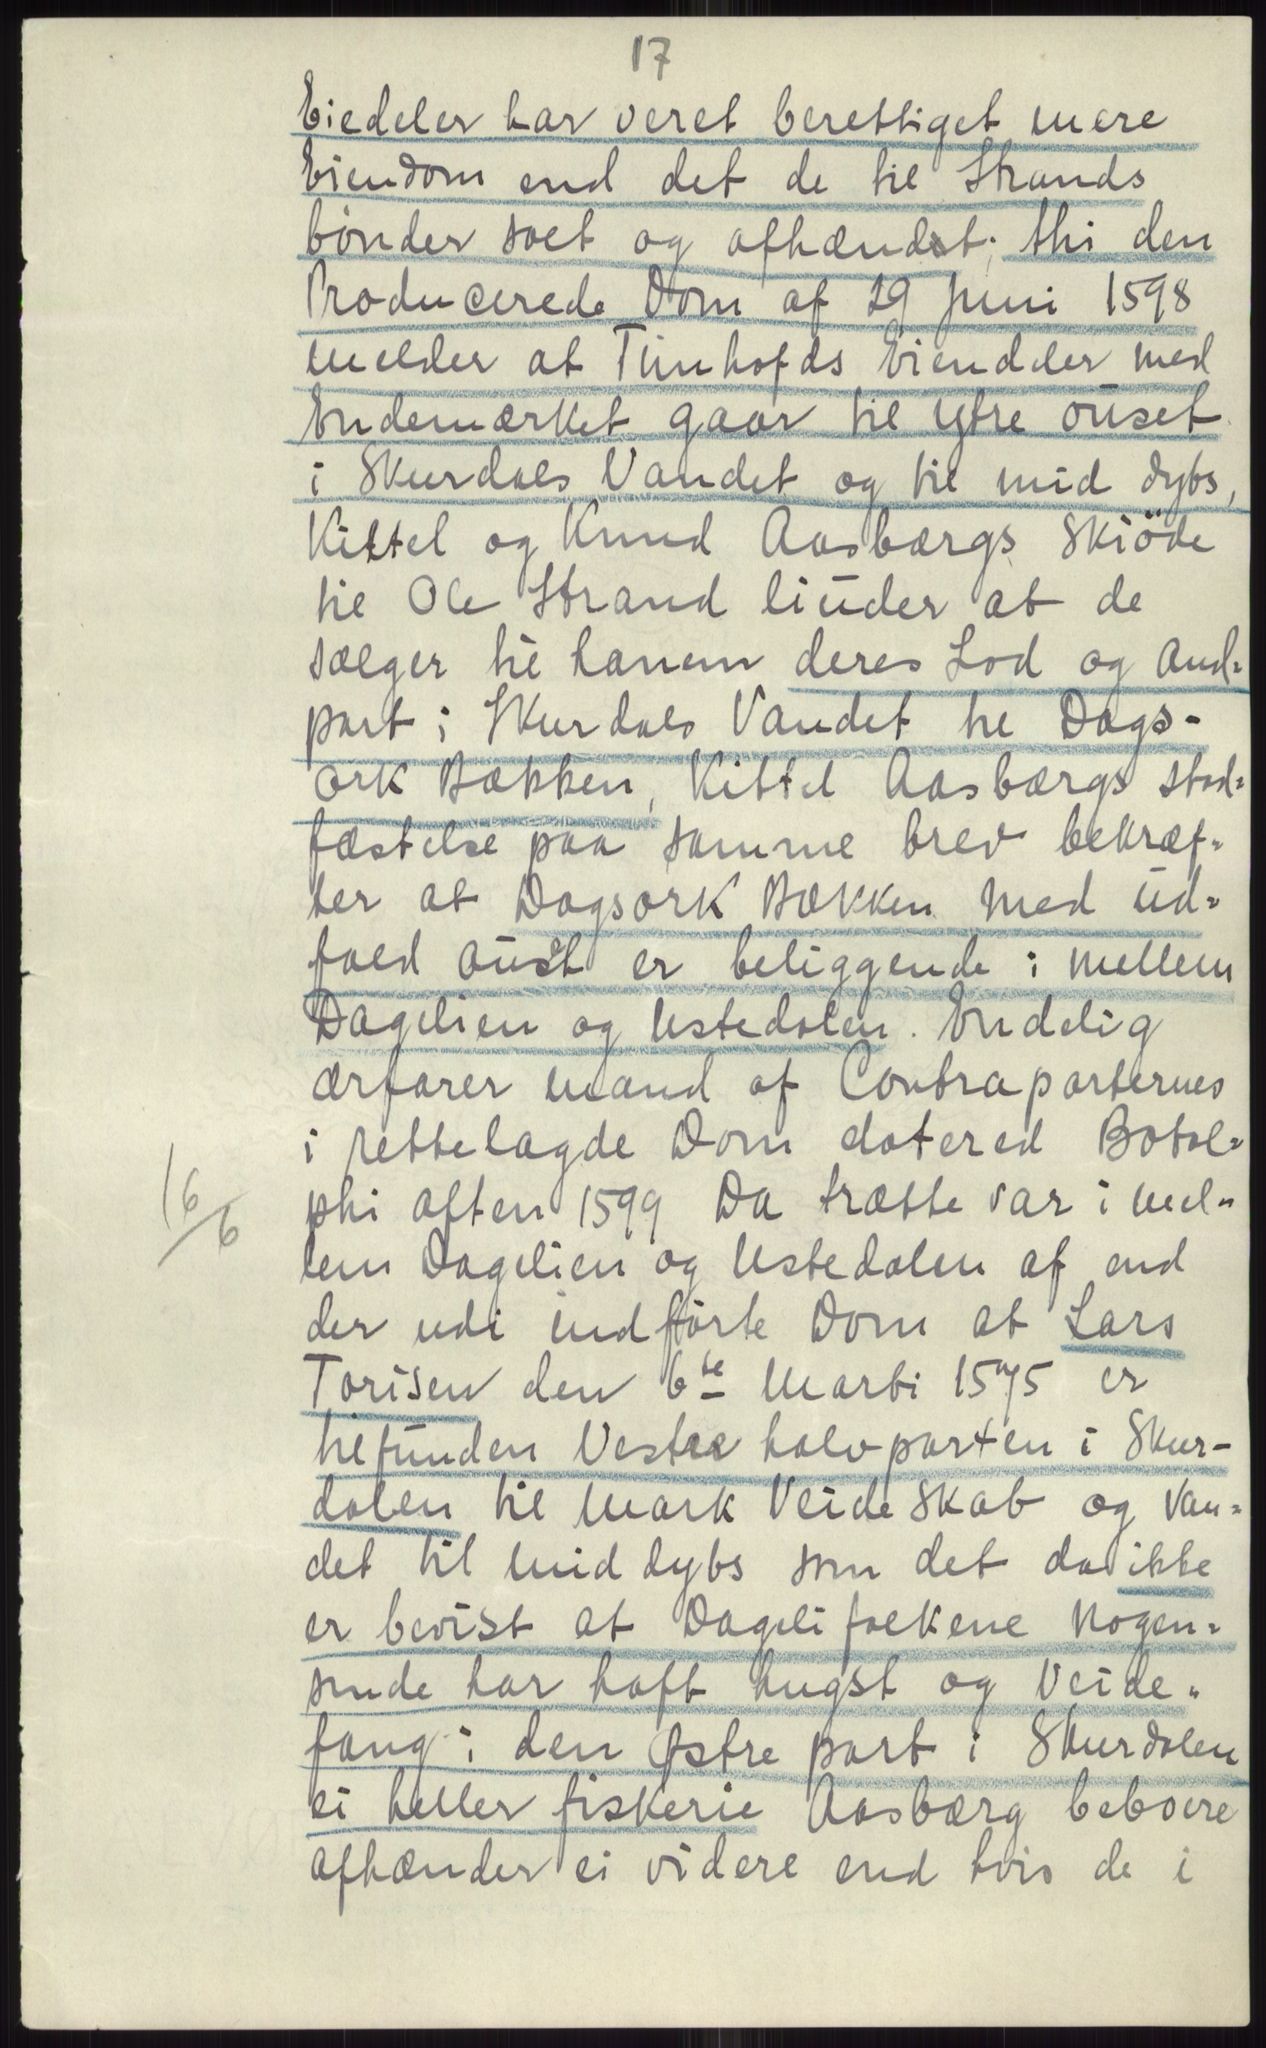 17
Eiedeler har veret berettiget mere
Eiendom end det de til Strands
bønder solt og afhændet; thi den
Producerede Dom af 29 Juni 1598
melder at Tunhofds Eiendeler med
Endemærket gaar til ytre oüset
i Skurdals Vandet og til mid dybs,
Kittel og Knud Aasbærgs Skiöde
til Ole Strand liüder at de
sælger til hanem deres Lod og And-
part i Skurdals Vandet til Dags-
ork Bækken, Kittel Aasbærgs stad-
fæstelse paa samme brev bekræf-
ter at Dagsork Bækken med üd-
fald oüst er beliggende i mellem
Dagelien og Ustedalen. Endelig
ærfarer mand af Contraparternes
i rettelagde Dom datered Botol-
16/6
phi aften 1599 Da trætte var i mel-
lem Dagelien og Ustedalen af end
der udi indførte Dom at Lars
Torisen den 6te Marti 1575 er
tilfünden Vestre halvparten i Skur-
dalen til Mark Veide Skab og Van-
det til mid dybs som det da ikke
er bevist at Dageli folkene Nogen-
sinde har haft hugst og Veide-
fang i den østre part i Skurdalen
ei heller fiskerie Aasbærg beboere
afhænder ei videre end hvis de i